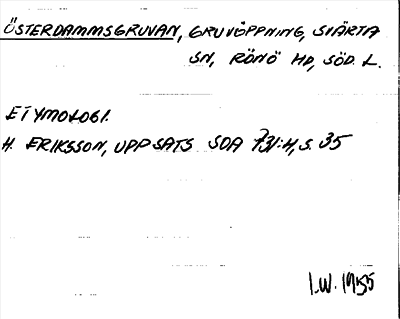 ÖSTERDAMMSGRUVAN, GRUVÖPPNING, SVÄRTA
SN, RÖNÖ HD, SÖD. L.
ETYMOLOGI.
H. ERIKSSON, UPPSATS SOA 731:H, S. 35
I.W. 1955